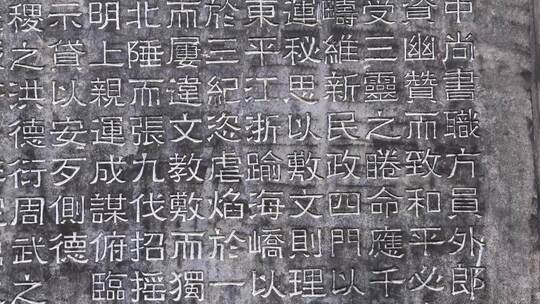 中尚書職方員外郎
資幽贊而致和平必
受三靈之睠命應千
疇維新民政四門以
運秘思以敷文則理
東平江浙踰海嶠以
於三紀恣虐焰於一
而屢違文教敷而獨
北陲而張九伐招搖
明上親運成謀俯臨
示貸以安歹側德
稷之洪德衍周武之